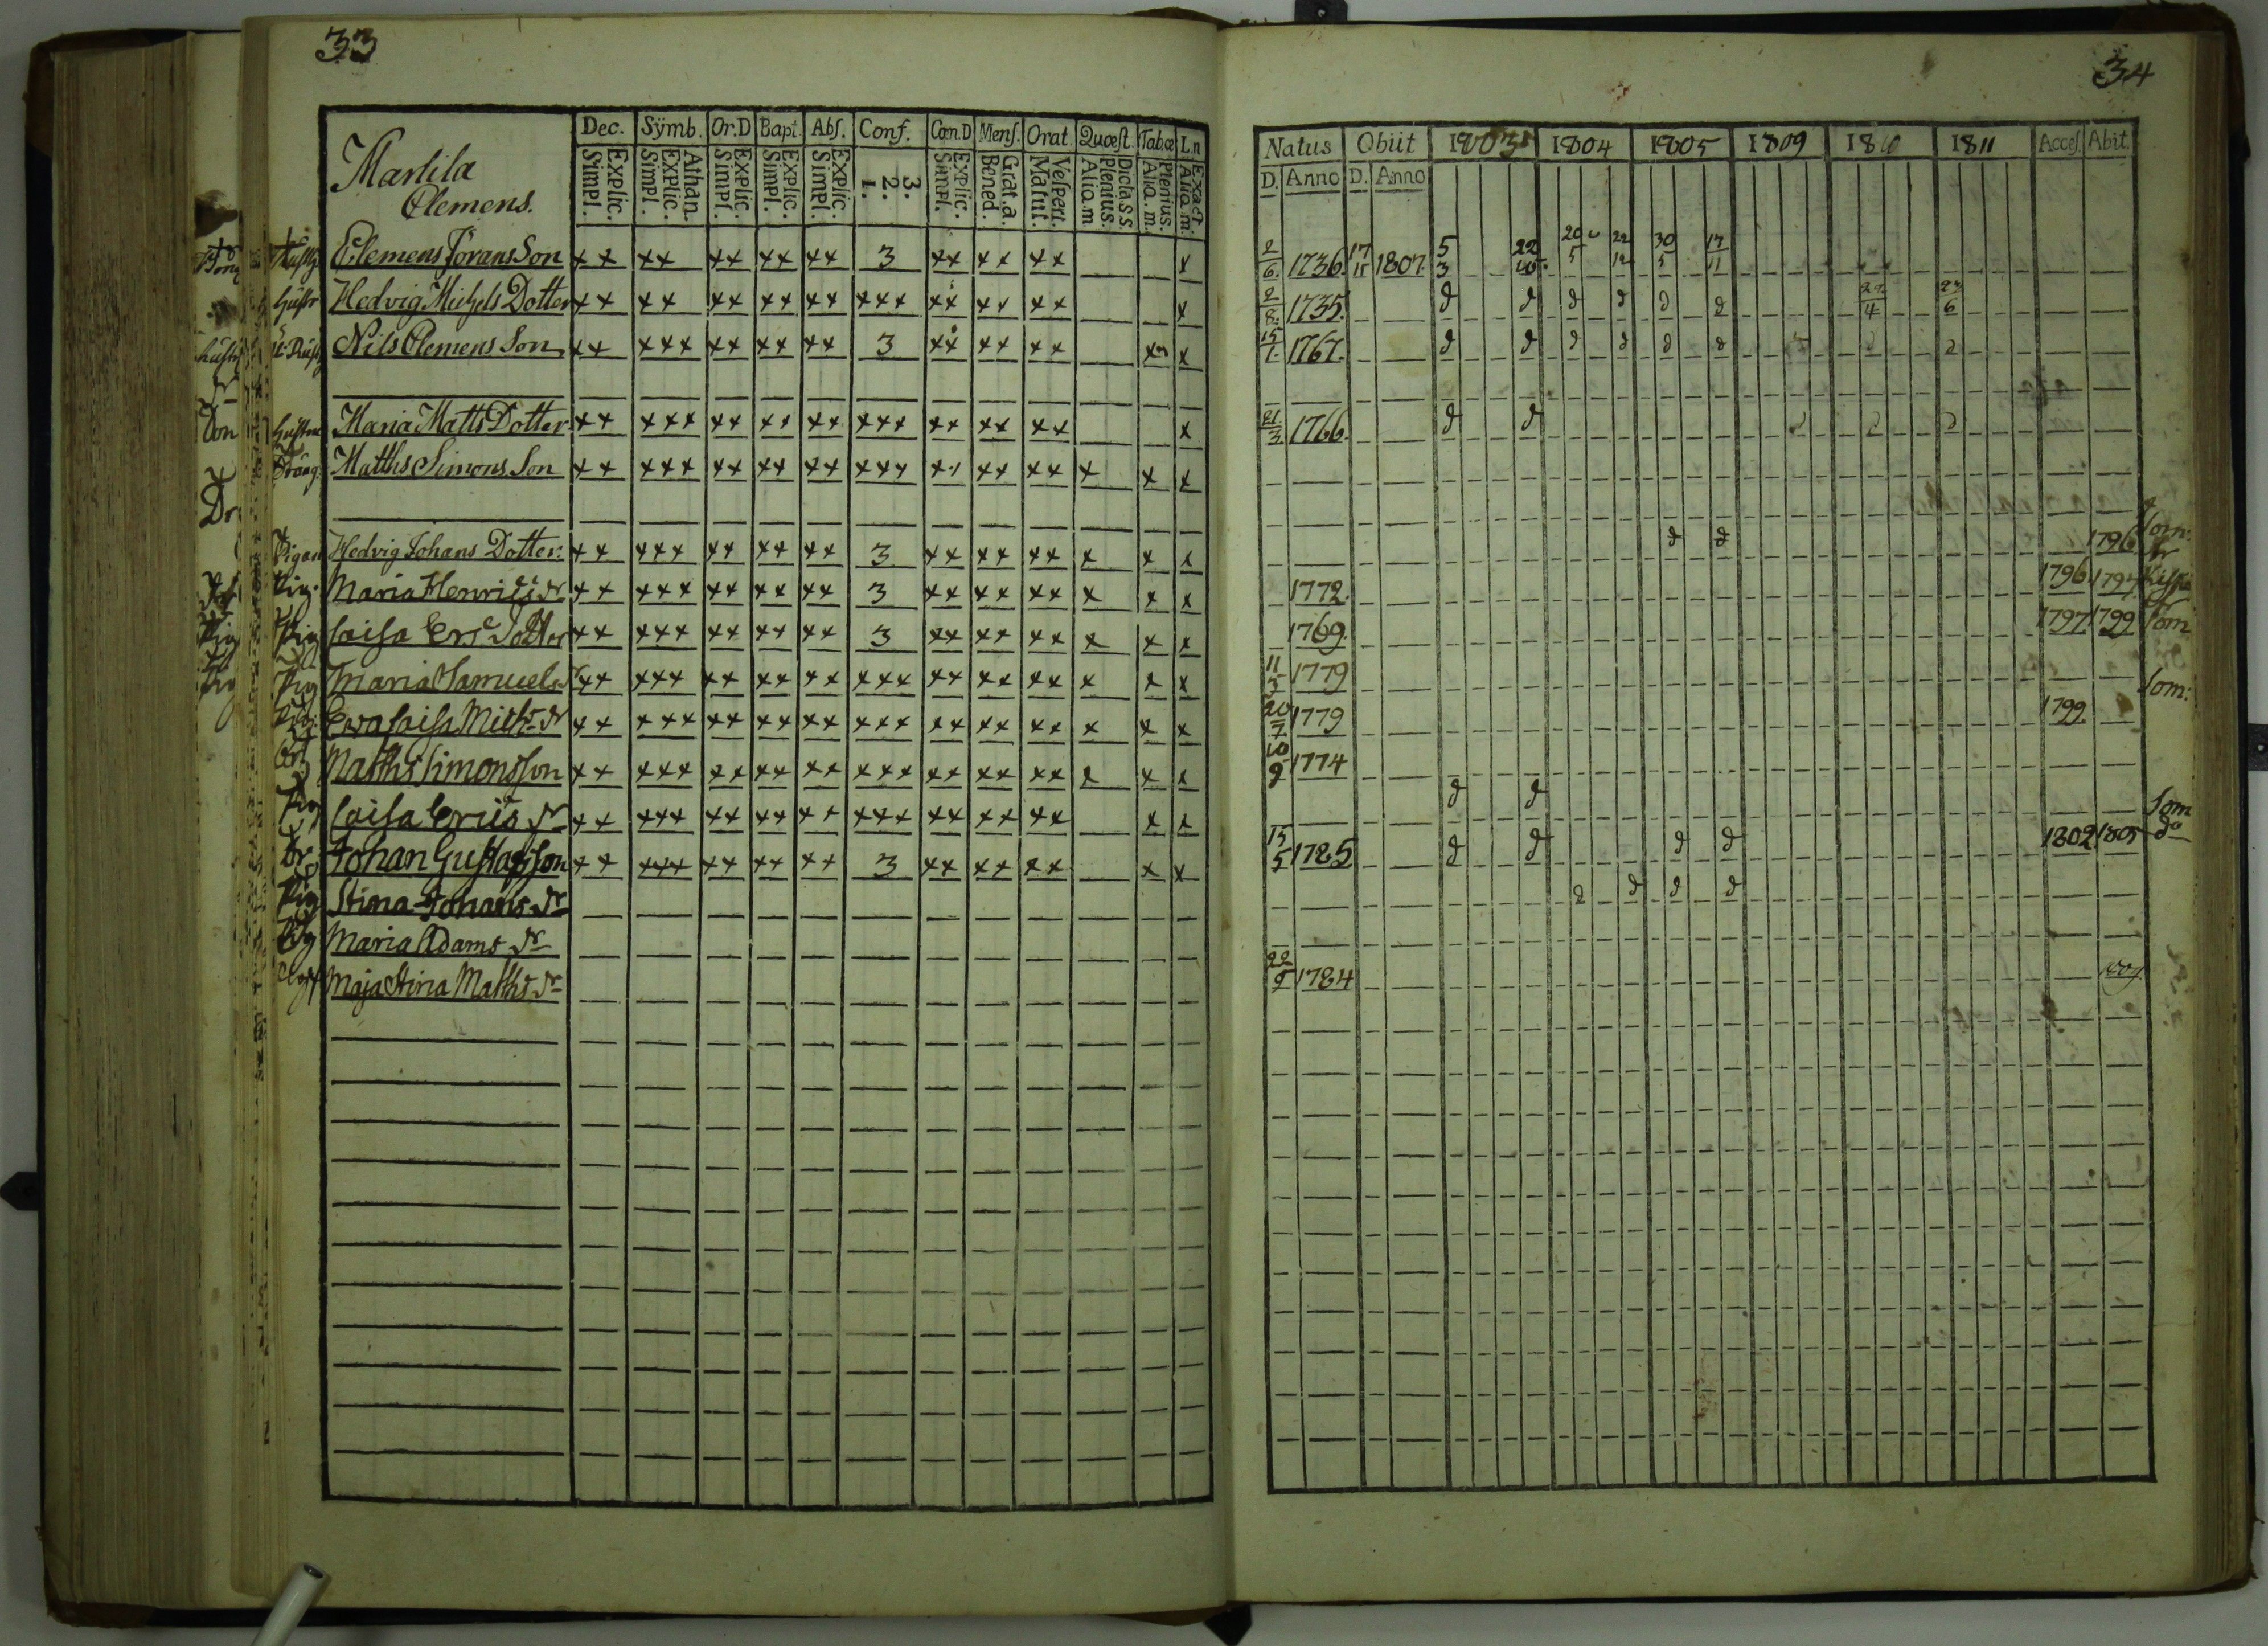 33
Marlila
Clemens.
Dec. Sÿmb. Or.D Bapt. Abſ. Conf. Cœn.D Menſ. Orat. Quœſt. Tabœ L.n
Explic. Simpl. Athan. Explic. Simpl. Explic. Simpl. Explic. Simpl. Explic. Simpl. 3. 2. 1. Explic. Simpl. Grat.a. Bened. Veſpert. Matut. Dicta S.S. Plenius. Aliq.m Plenius. Aliq.m. Exact. Aliq.m.
Clemens Jörans Son xx xx xx xx xx 3 xx xx xx x
Hedvig Michels Dotter xx xx xx xx xx xxx xx xx xx x
Nils Clemens Son xx xxx xx xx xx 3 xx xx xx x x
Maria Matts Dotter xx xxx xx xx xx xxx xx xx xx x
Matths Simons Son xx xxx xx xx xx xxx xx xx xx x x x
Pigan Hedvig Johans Dotter: xx xxx xx xx xx 3 xx xx xx x x x
Pig. Maria Henrics dr xx xxx xx xx xx 3 xx xx xx x x x
Pig Caisa Ers Dotter xx xxx xx xx xx 3 xx xx xx x x x
Pig Maria Samuels xx xxx xx xx xx xxx xx xx xx x x x
Pig. Ewa Caisa Mich. dr xx xxx xx xx xx xxx xx xx xx x x x
Matths Simonsson xx xxx xx xx xx xxx xx xx xx x x x
Pig Caisa Erics dr xx xxx xx xx xx xxx xx xx xx x x
Dr Johan Gustafsson xx xxx xx xx xx 3 xx xx xx x x
Pig Stina Johans dr
Pig Maria Adams dr
Maja Stina Matths dr
34
Natus Obiit 1803 1804 1805 1809 1810 1811 Acceſ. Abit.
D. Anno D. Anno
2/6. 1736. 17/15 1807. 5/3 22/10. 20/5 22/12 30/5 17/11
2/8. 1735. d d d d d d 22/4 23/6
15/1. 1767. d d d d d d
21/3 1766. d d
d d 1796 Som:
1772. 1796 1797
1769. 1797 1799 Som
11/3 1779 Som:
20/7 1779 1799.
10/9 1774
d d Som
15/5 1785 d d d d 1802 1805 do
d d d d
22/9 1784 1807